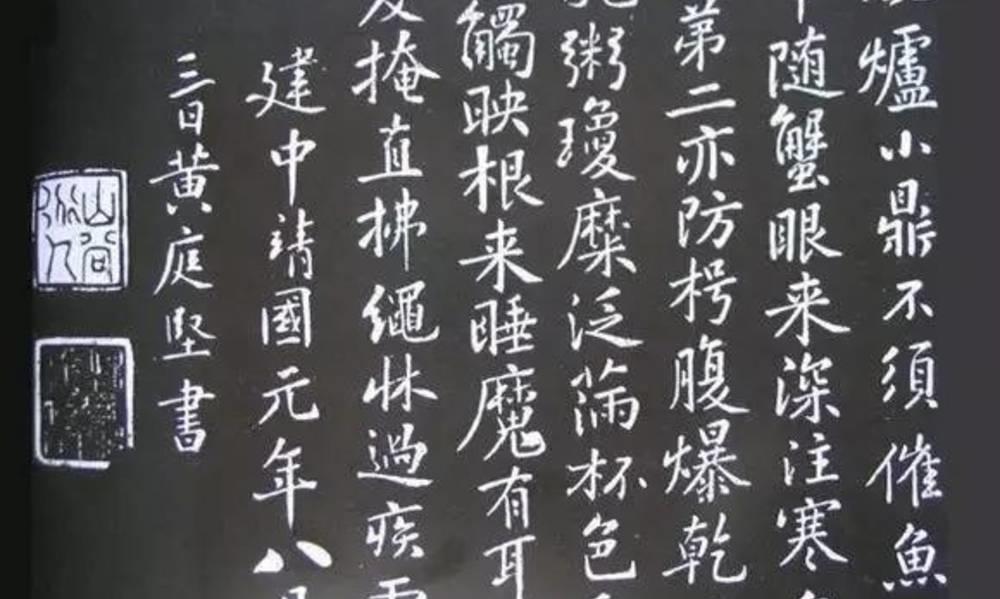 爐小鼎不須催魚
隨蟹眼来深注寒
第二亦防枵腹爆乾
粥瓊糜泛滿杯色
觸映根来睡魔有耳
及掩直拂繩牀過疾
建中靖國元年八
三日黄庭堅書
山谷道人